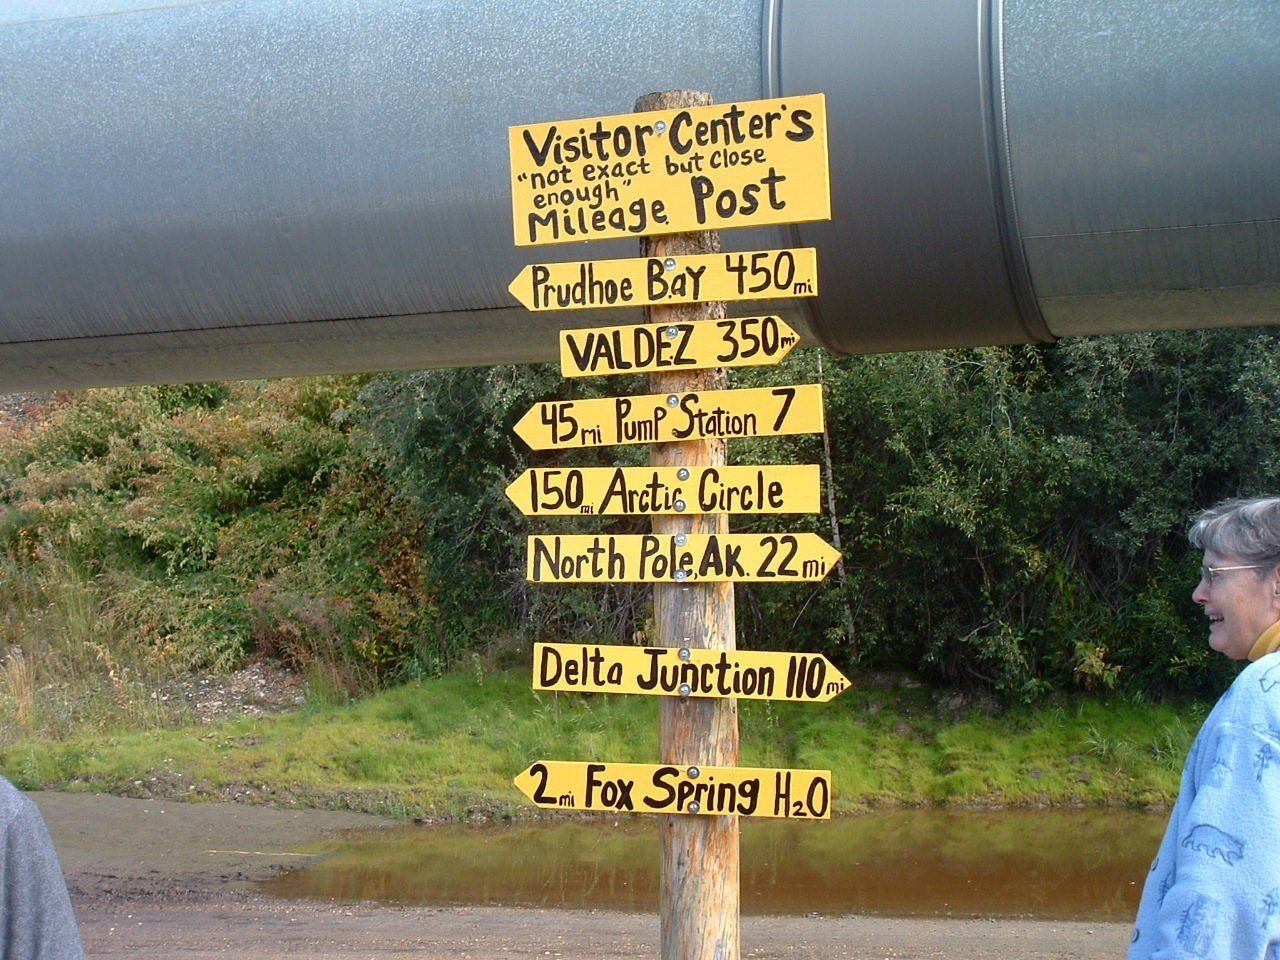 Visitor Center's
"not exact but close
enough"
Mileage Post
Prudhoe Bay 450mi
VALDEZ 350mi
45mi Pump Station 7
150mi Arctic Circle
North Pole, AK. 22mi
Delta Junction 110mi
2mi Fox Spring H₂O